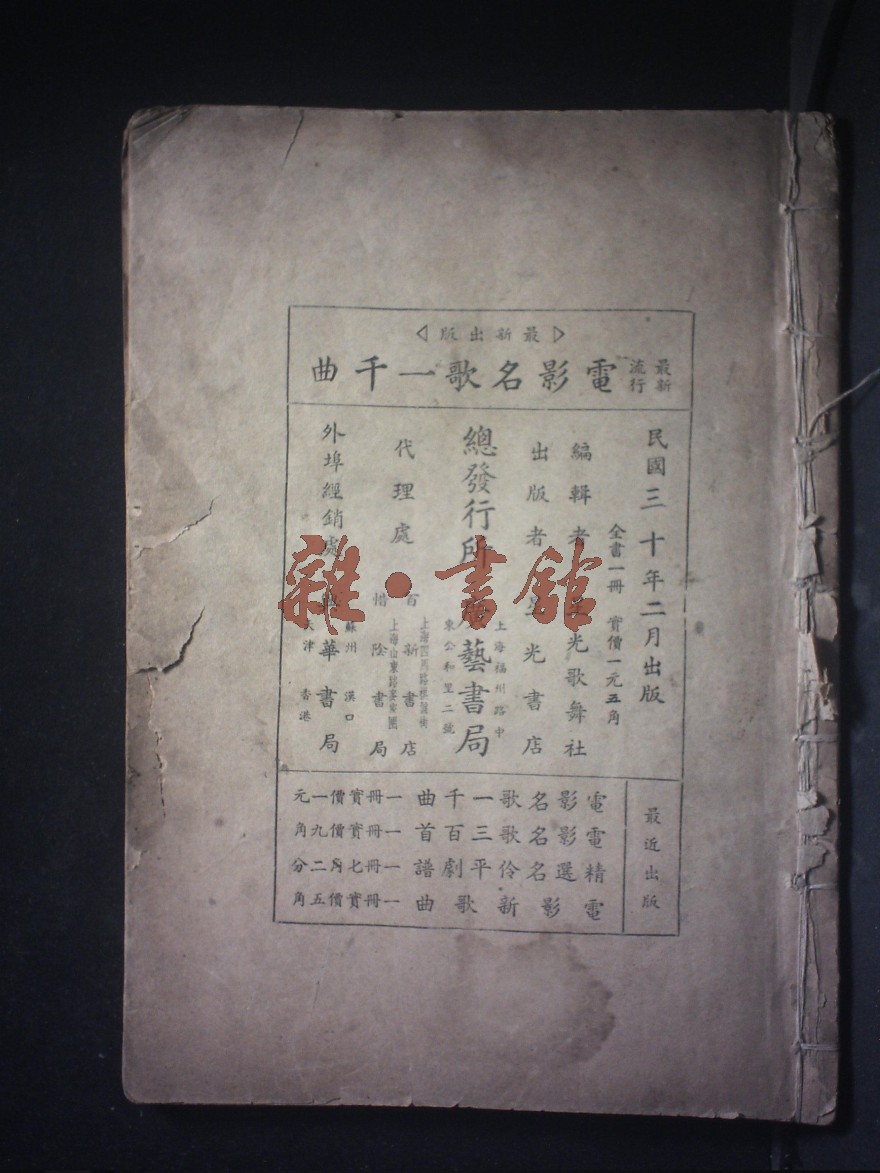 ▷最新出版◁
最新
流行
電影名歌一千曲
民國三十年二月出版
全書一冊 實價一元五角
編輯者 光歌舞社
出版者 光書店
上海福州路中
總發行所 藝書局
東公和里二號
代理處
上海四馬路棋盤街
百新書店
上海山東路麥家圈
惜陰書局
外埠經銷處
蘇州 漢口
華書局
津 香港
最近出版
電影名歌一千曲 一冊實價一元
電影名歌三百首 一冊實價九角
精選名伶平劇譜 一冊七角二分
電影新歌曲 一冊實價五角
雜·書館